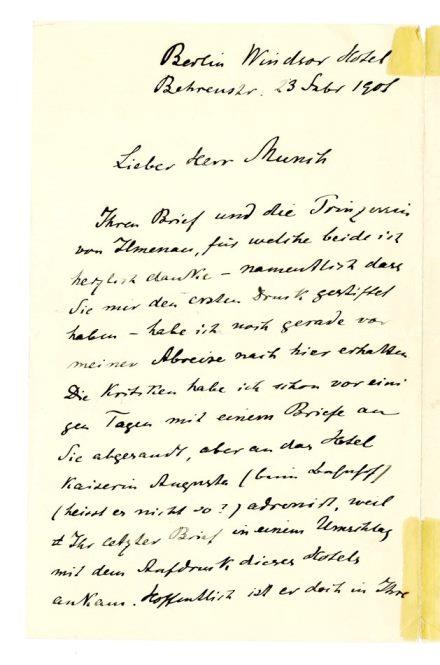 Berlin Windsor Hotel
Behrenstr. 23 1901
Lieber Herr Munch
Ihren Brief und die Prinzessin
von Ilmenau, für welche beide ich
herzlich danke – namentlich dass
Sie mir den ersten Druck gestiftet
haben – habe ich noch gerade vor
meiner Abreise nach hier erhalten
Die Kritiken habe ich schon vor eini
gen Tagen mit einem Briefe an
Sie abgesandt, aber an das Hotel
Kaiserin Augusta (beim Bahnhof)
(heisst es nicht so?) adressirt, weil
Ihr letzter Brief in einem Umschlag
mit dem Aufdruck dieses Hotels
ankam. Hoffentlich ist er doch in Ihre